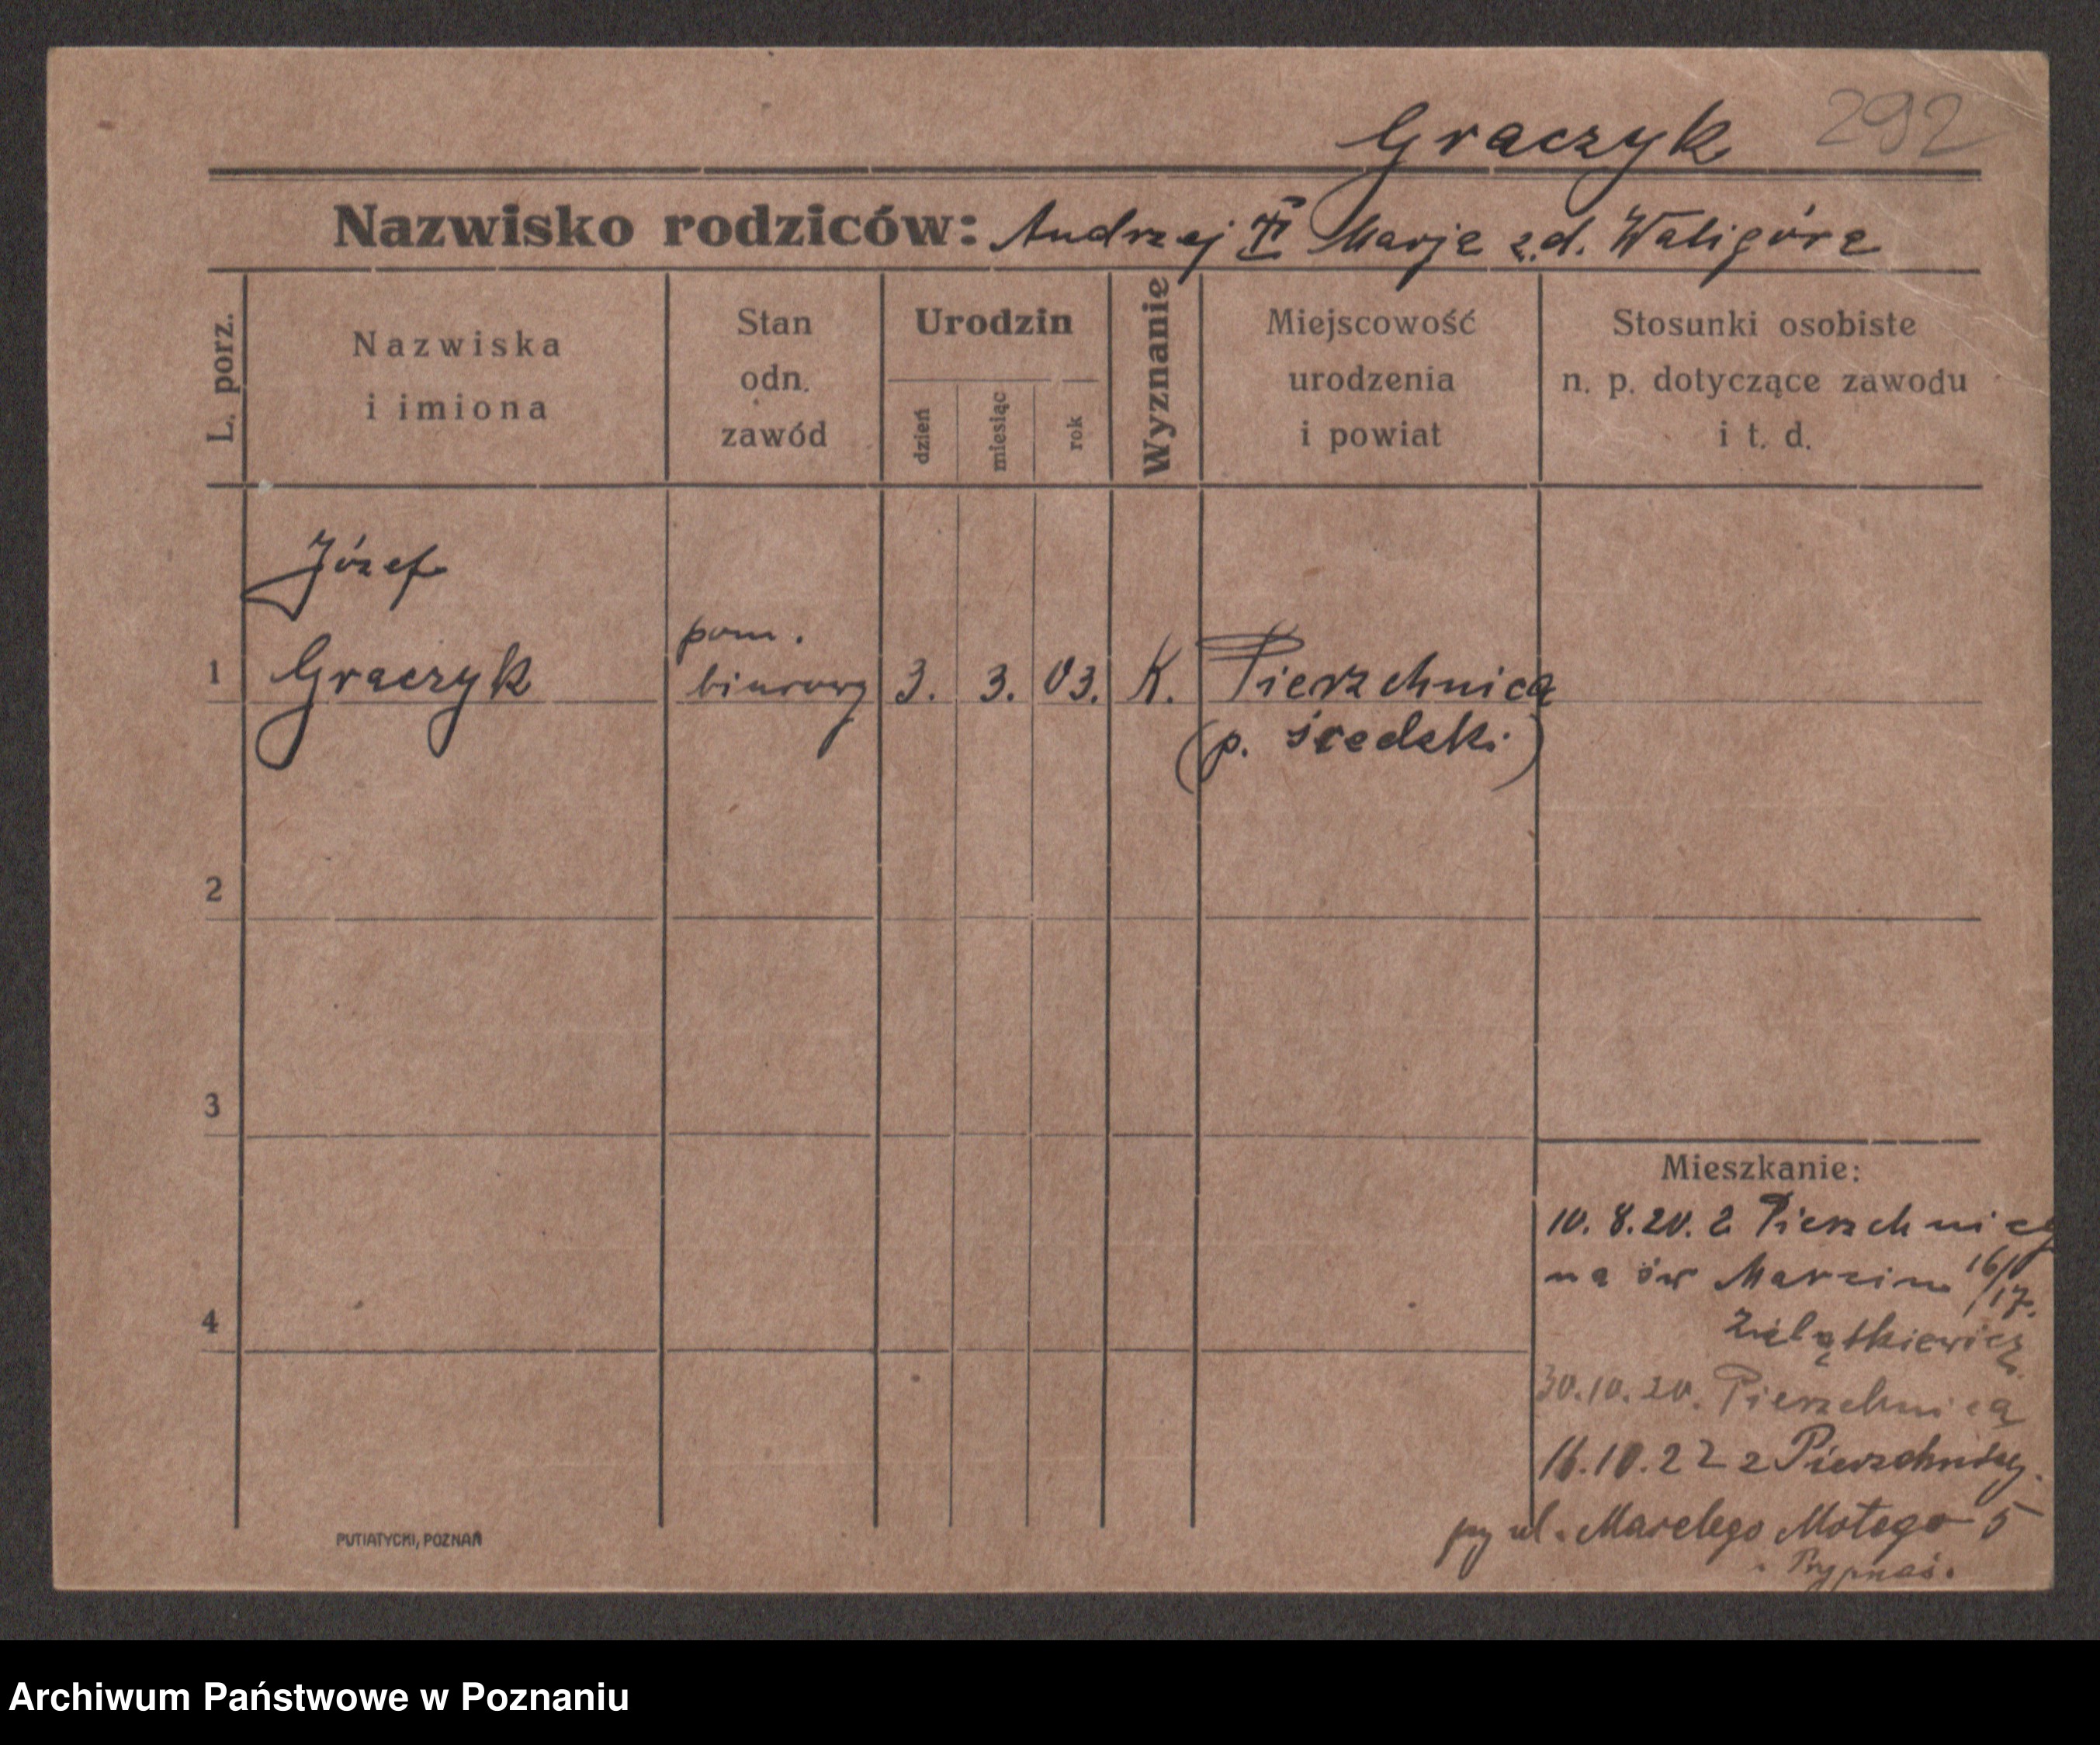 Graczyk 292
Nazwisko rodziców: Andrzej Marja z.d. Waligóra
L. porz.
Nazwiska
i imiona
Stan
odn.
zawód
Urodzin
dzień
miesiąc
rok
Wyznanie
Miejscowość
urodzenia
i powiat
Stosunki osobiste
n. p. dotyczące zawodu
i t. d.
Józef
pom.
1 Graczyk biurowy 3. 3. 03. K. Pierzchnica
(p. średzki)
2
3
4
Mieszkanie:
10. 8. 20. z Pierzchnicy
na św Marcin 16/17.
30.10.20. Pierzchnica
16.10.22 z Pierzchnicy.
ul. Marcelego Motego 5
PUTIATYCKI, POZNAŃ
Archiwum Państwowe w Poznaniu